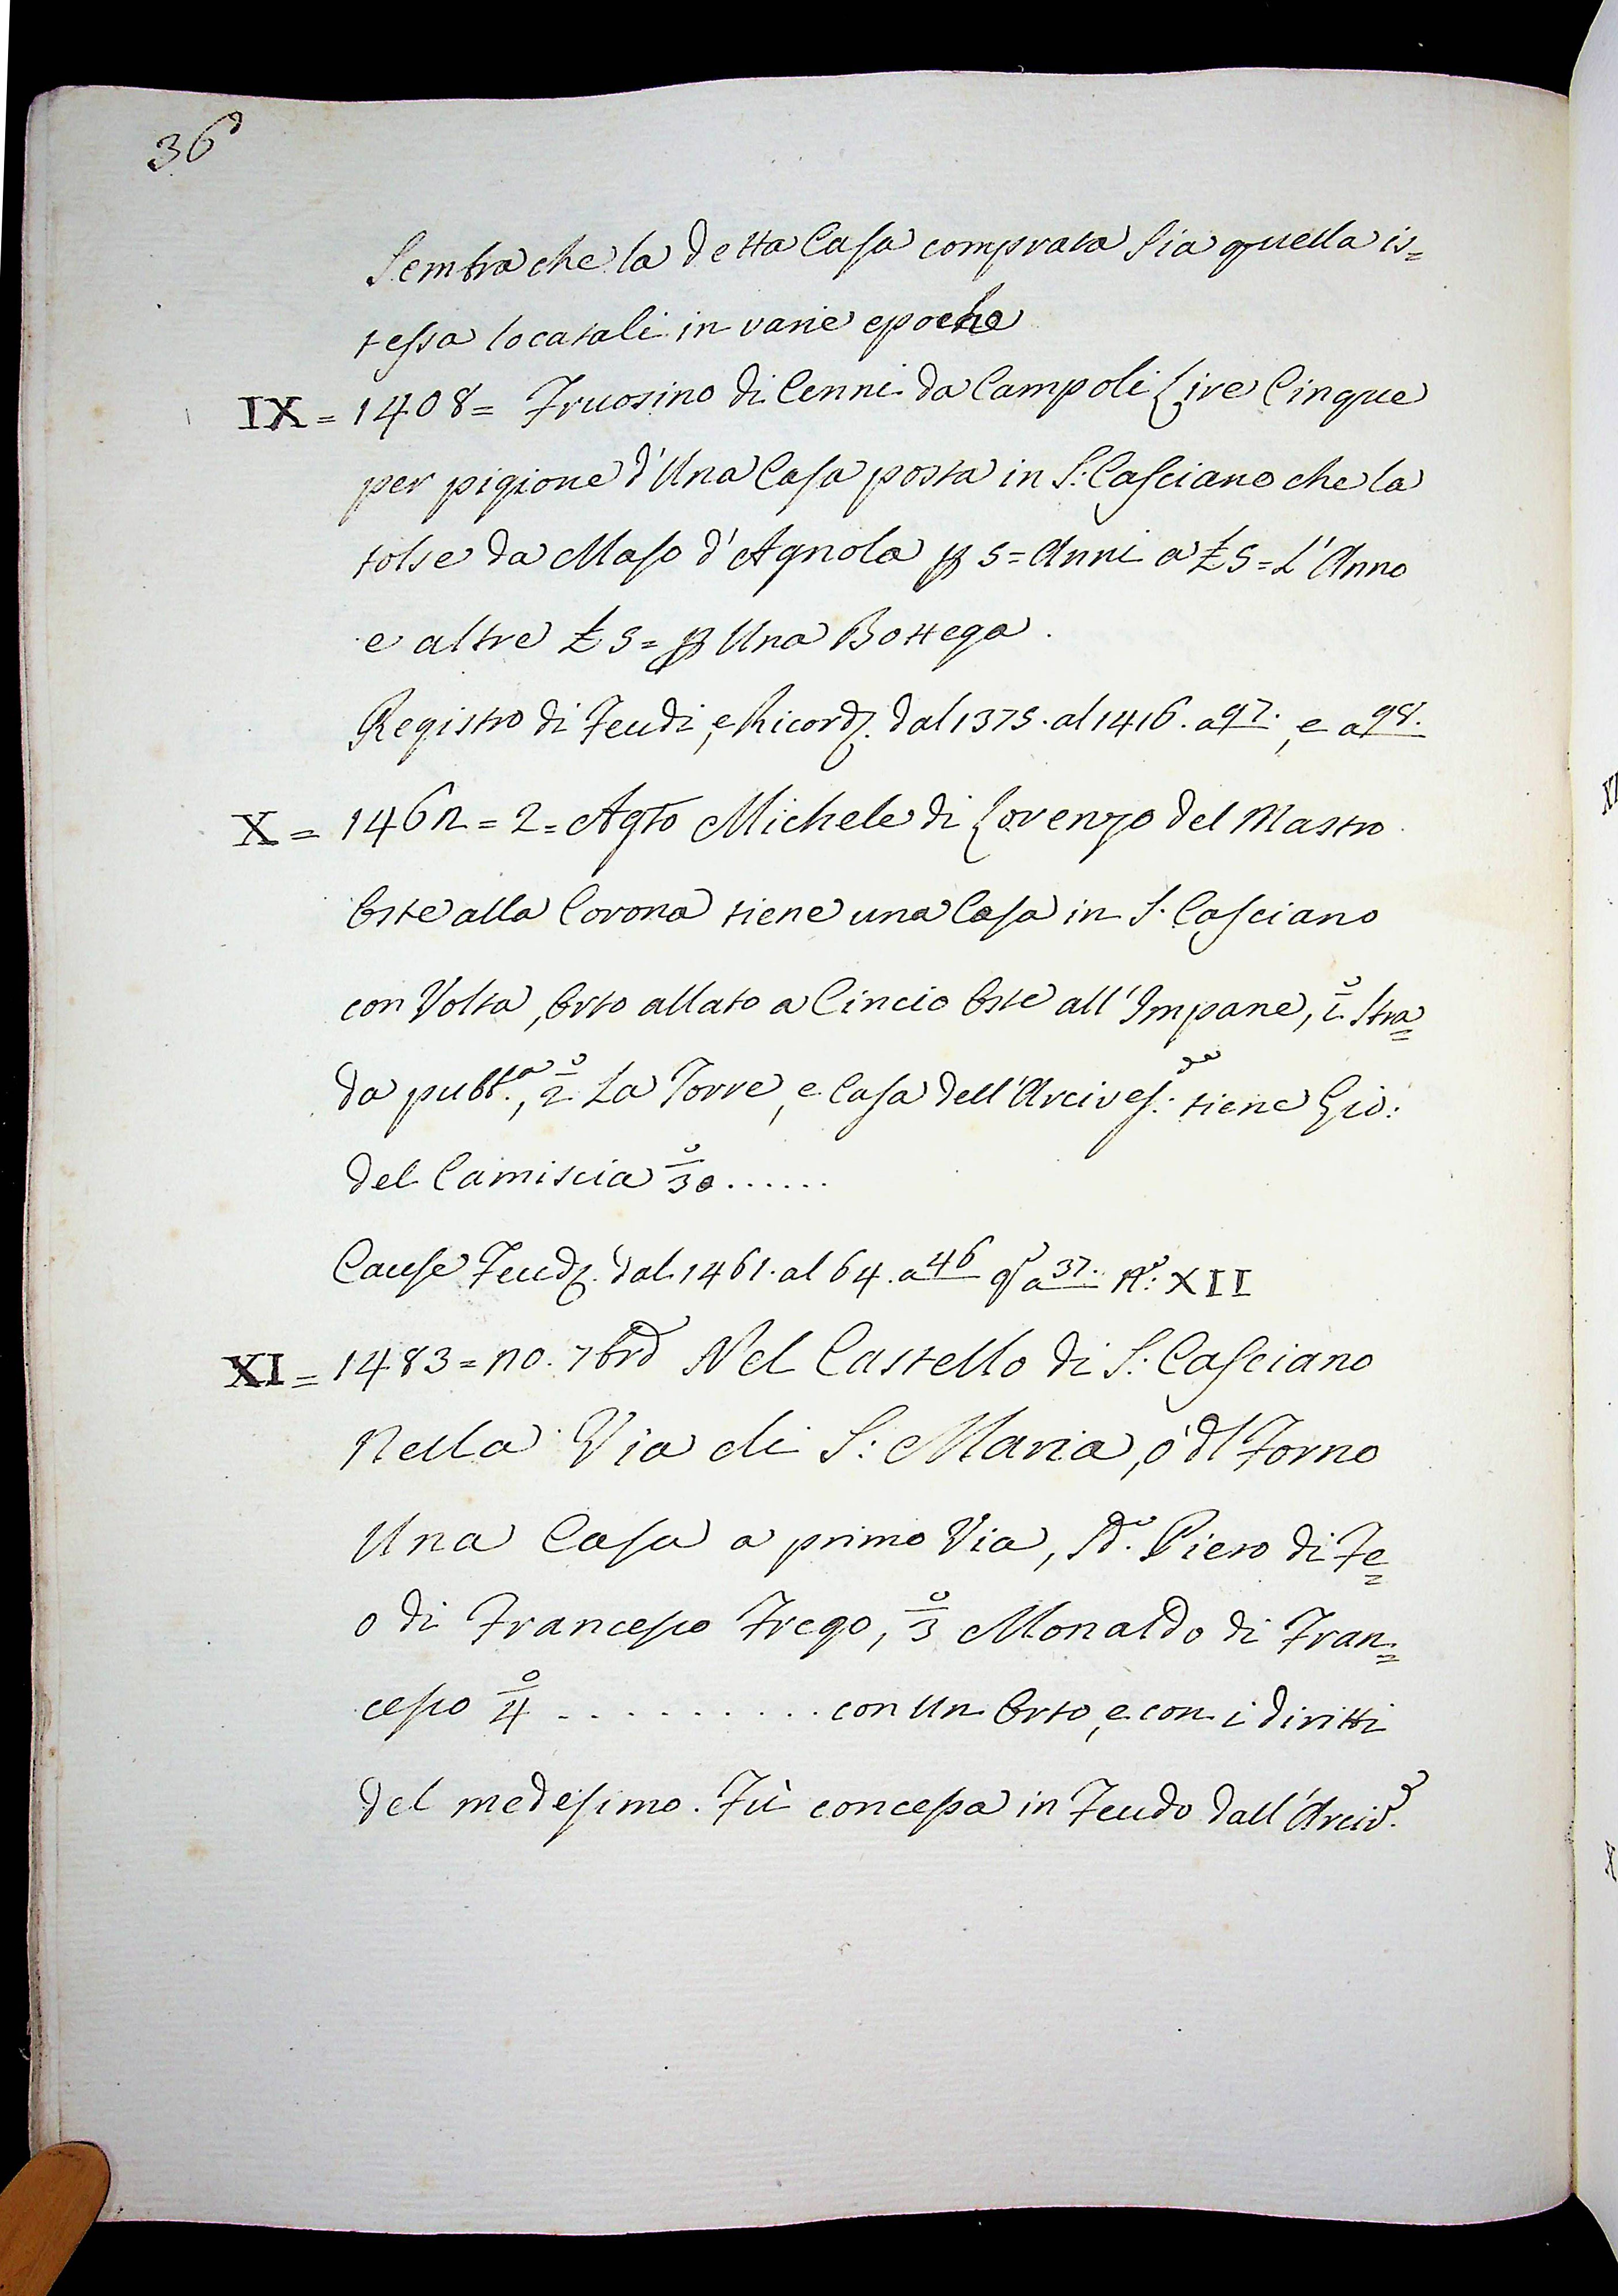 36
Sembra che la detta Casa comprata sia quella is=
tessa locatali in varie epoche
IX = 1408 = Fruosino di Cenni da Campoli Lire Cinque
per pigione d'Una Casa posta in S: Casciano che la
tolse da Maso d'Agnola p 5 = Anni a £ 5 = L'Anno
e altre £ 5 = p Una Bottega.
Registro di Feudi, e Ricordz. dal 1375. al 1416. a 97., e a 98.
X = 1462 = 2 = Agto Michele di Lorenzo del Mastro
Oste alla Corona tiene una Casa in S. Casciano
con Volta, Orto allato a Cincio Oste all'Impane, i° Stra=
da pubb.a, 2° La Torre, e Casa dell'Arcives: tiene Gio:
del Camiscia 3°......
Cause Feudz. dal 1461. al 64. a 46 a 37. N°: XII
XI = 1483 = 10. 7bre Nel Castello di S: Casciano
Nella Via di S: Maria, ó dl Forno
Una Casa a primo Via, Sd.° Piero di Fe=
o di Francesco Frego, 3° Monaldo di Fran=
cesco 4° .......... con Un Orto, e con i diritti
del medesimo. Fù concessa in Feudo dall'Arciv.